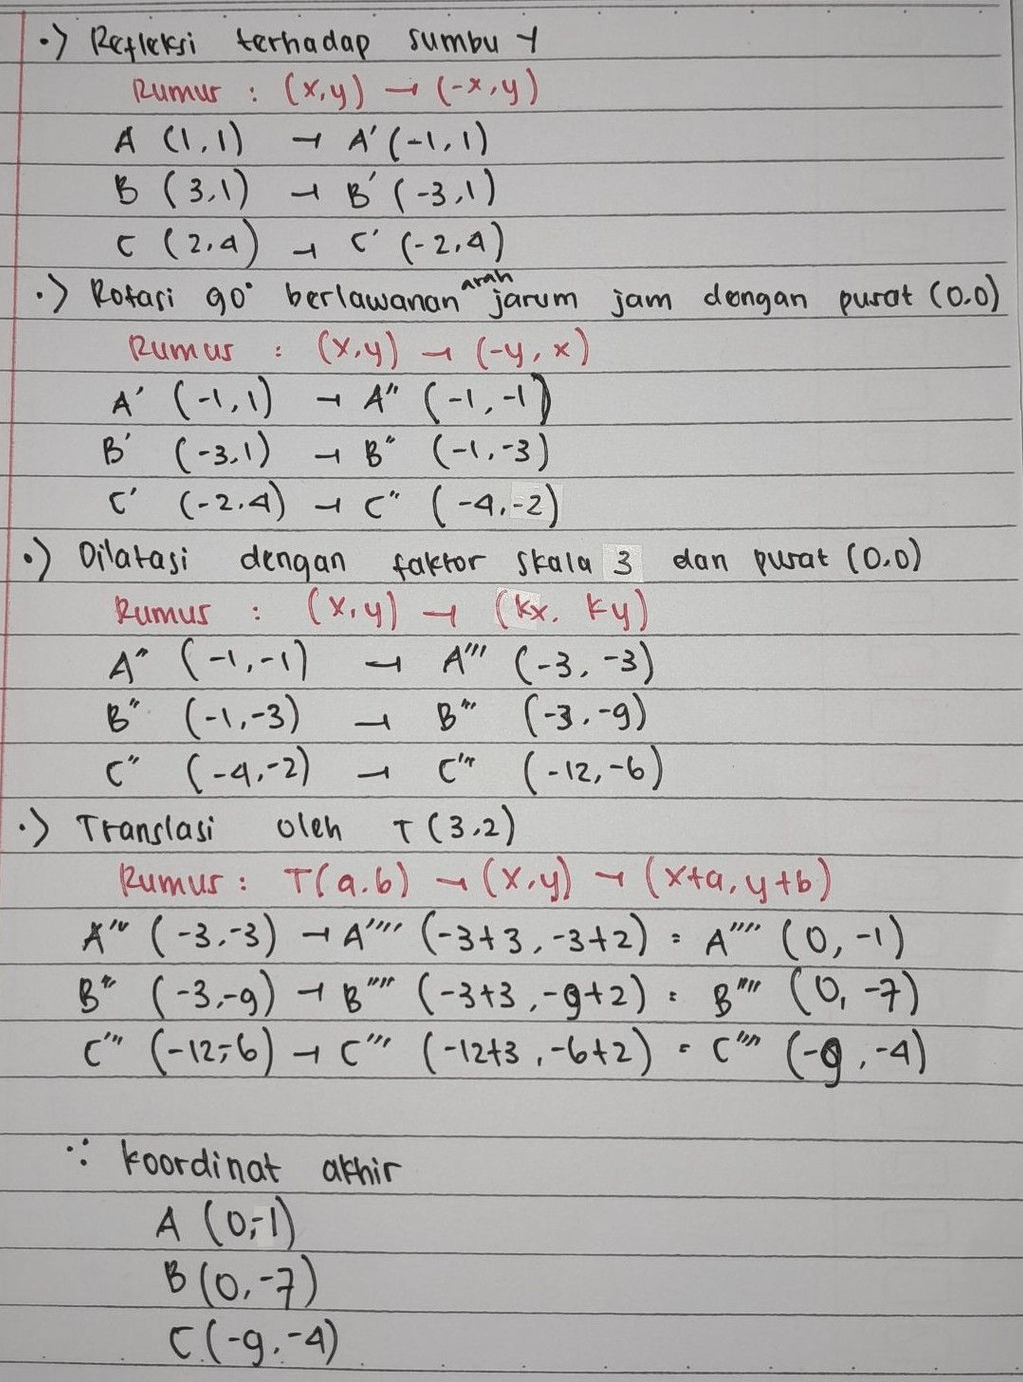 •> Refleksi terhadap sumbu Y
Rumus : (x,y) → (-x,y)
A (1,1) → A' (-1,1)
B (3,1) → B' (-3,1)
C (2,4) → C' (-2,4)
•> Rotasi 90° berlawanan arah jarum jam dengan pusat (0.0)
Rumus : (x,y) → (-y, x)
A' (-1,1) → A" (-1,-1)
B' (-3,1) → B" (-1,-3)
C' (-2,4) → C" (-4,-2)
•) Dilatasi dengan faktor skala 3 dan pusat (0.0)
Rumus : (x,y) → (kx. ky)
A" (-1,-1) → A''' (-3, -3)
B" (-1,-3) → B''' (-3.-9)
C" (-4,-2) → C''' (-12,-6)
•> Translasi oleh T (3.2)
Rumus : T(a.b) → (x,y) → (x+a, y+b)
A''' (-3.-3) → A'''' (-3+3, -3+2) = A'''' (0, -1)
B''' (-3,-9) → B'''' (-3+3, -9+2) = B'''' (0, -7)
C''' (-12,-6) → C''' (-12+3, -6+2) = C'''' (-9, -4)
∵ koordinat akhir
A (0,-1)
B (0,-7)
C (-9.-4)